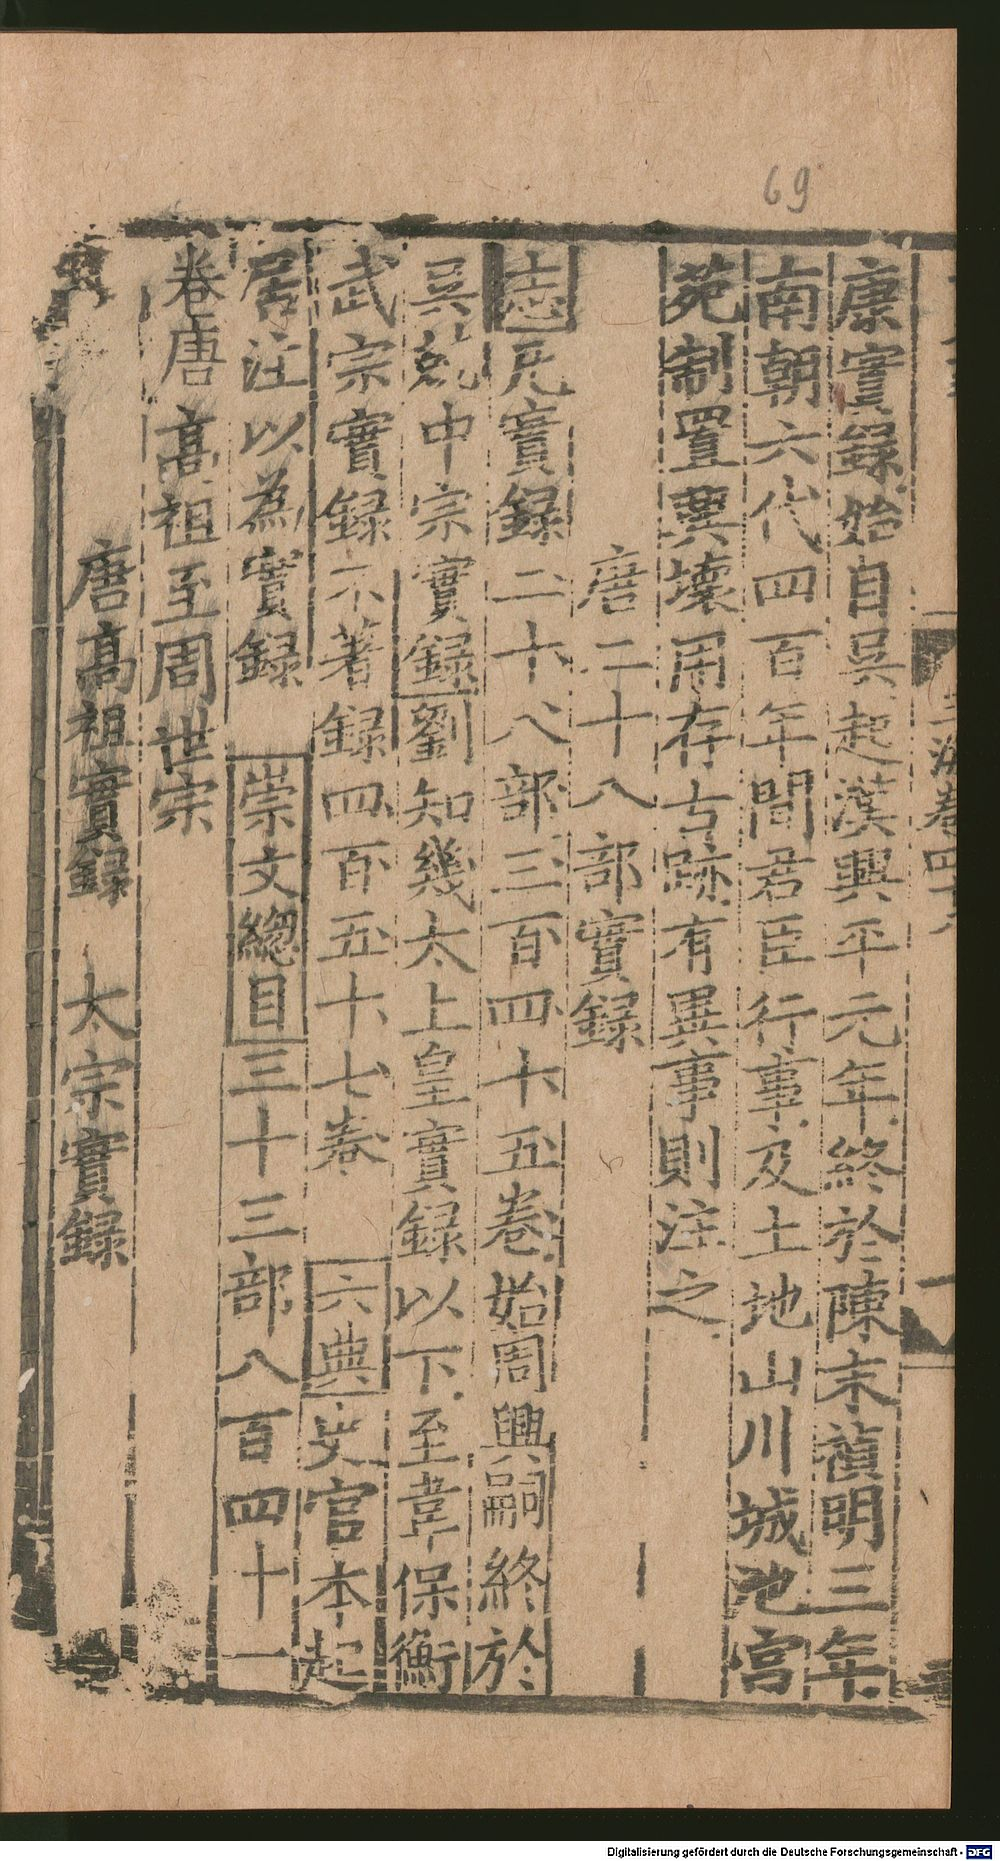 69
康實錄始自吳起漢興平元年終於陳末禎明三年
南朝六代四百年間君臣行事及土地山川城池宮
苑制置興壞用存古跡有異事則注之
唐二十八部實錄
志凡實錄二十八部三百四十五卷始周興嗣終於
吳兢中宗實錄劉知幾太上皇實錄以下至韋保衡
武宗實錄不著錄四百五十七卷 六典史官本起
居注以為實錄 崇文總目三十三部八百四十一
卷唐高祖至周世宗
唐高祖實錄 太宗實錄
Digitalisierung gefördert durch die Deutsche Forschungsgemeinschaft - DFG